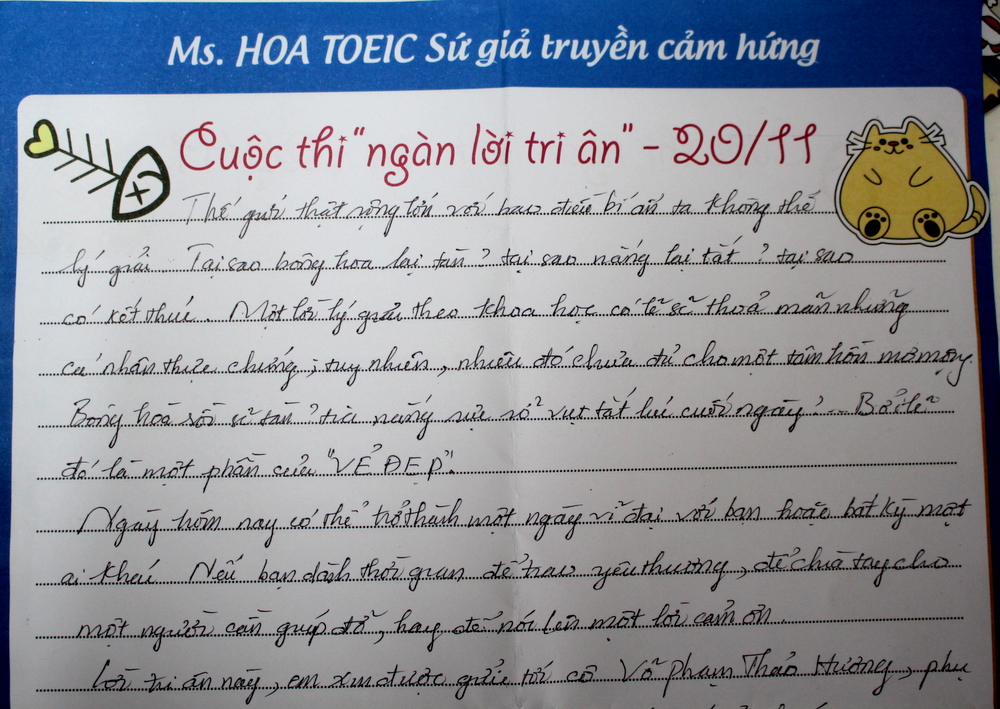 Ms. HOA TOEIC Sứ giả truyền cảm hứng
Cuộc thi "ngàn lời tri ân" - 20/11
Thế giới thật rộng lớn với bao điều bí ẩn ta không thể
lý giải. Tại sao bông hoa lại tàn? tại sao nắng lại tắt? tại sao
có kết thúc. Một lời lý giải theo khoa học có lẽ sẽ thoả mãn những
cá nhân thực chứng; tuy nhiên, nhiêu đó chưa đủ cho một tâm hồn mơ mộng.
Bông hoa rồi sẽ tàn, tia nắng rực rỡ vụt tắt lúc cuối ngày? ... Bởi lẽ
đó là một phần của "VẺ ĐẸP".
Ngày hôm nay có thể trở thành một ngày vĩ đại với bạn hoặc bất kỳ một
ai khác. Nếu bạn dành thời gian để trao yêu thương, để chìa tay cho
một người cần giúp đỡ, hay để nói lên một lời cảm ơn.
Lời tri ân này, em xin được gửi tới cô Võ Phạm Thảo Hương, phụ